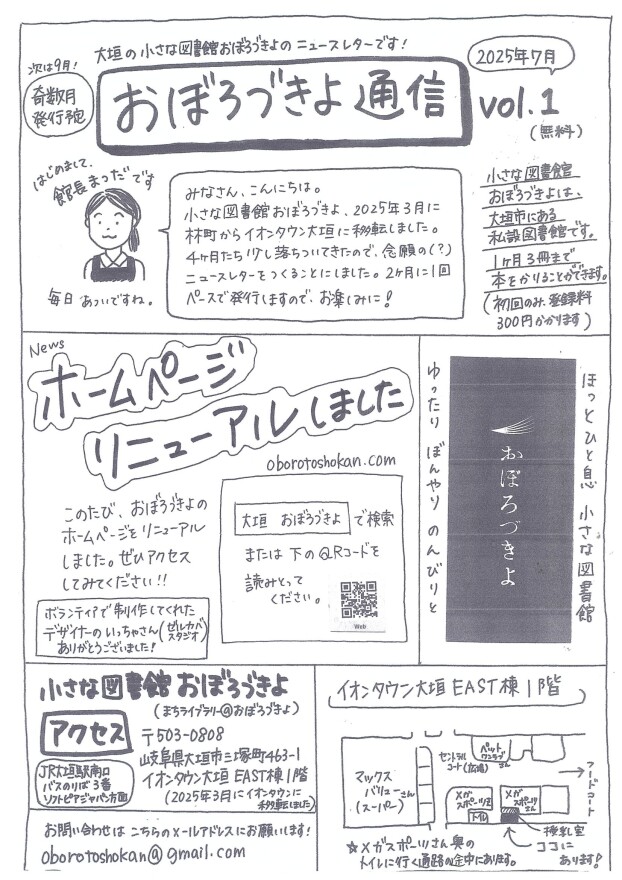 大垣の小さな図書館おぼろづきよのニュースレターです！
2025年7月
次は9月！
奇数月
発行予定
おぼろづきよ通信
vol.1
(無料)
はじめまして、
館長まつだです
毎日あついですね。
みなさん、こんにちは。
小さな図書館おぼろづきよ、2025年3月に
林町からイオンタウン大垣に移転しました。
4ヶ月たち少し落ちついてきたので、念願の(?)
ニュースレターをつくることにしました。2ヶ月に1回
ペースで発行しますので、お楽しみに！
小さな図書館
おぼろづきよは、
大垣市にある
私設図書館です。
1ヶ月3冊まで
本をかりることができます。
(初回のみ、登録料
300円かかります)
News
ホームページ
リニューアルしました
oborotoshokan.com
このたび、おぼろづきよの
ホームページをリニューアル
しました。ぜひアクセス
してみてください!!
大垣 おぼろづきよ で検索
または 下のQRコードを
読みとって
ください。
Web
ボランティアで制作してくれた
デザイナーのいっちゃさん(ゼルカバスタジオ)
ありがとうございました！
ほっとひと息 小さな図書館
おぼろづきよ
ゆったり ぼんやり のんびりと
小さな図書館おぼろづきよ
(まちライブラリー@おぼろづきよ)
アクセス
〒503-0808
岐阜県大垣市三塚町463-1
イオンタウン大垣 EAST棟1階
(2025年3月にイオンタウンに
移転しました)
JR大垣駅南口
バスのりば3番
ソフトピアジャパン方面
お問い合わせは こちらのメールアドレスにお願いします！
oborotoshokan@gmail.com
イオンタウン大垣 EAST棟1階
マックス
バリューさん
(スーパー)
セントラル
コート(広場)
ペット
ワンラブ
さん
フードコート
メガ
スポーツさん
トイレ
メガ
スポーツさん
授乳室
ココに
あります！
☆メガスポーツさん奥の
トイレに行く通路の途中にあります。